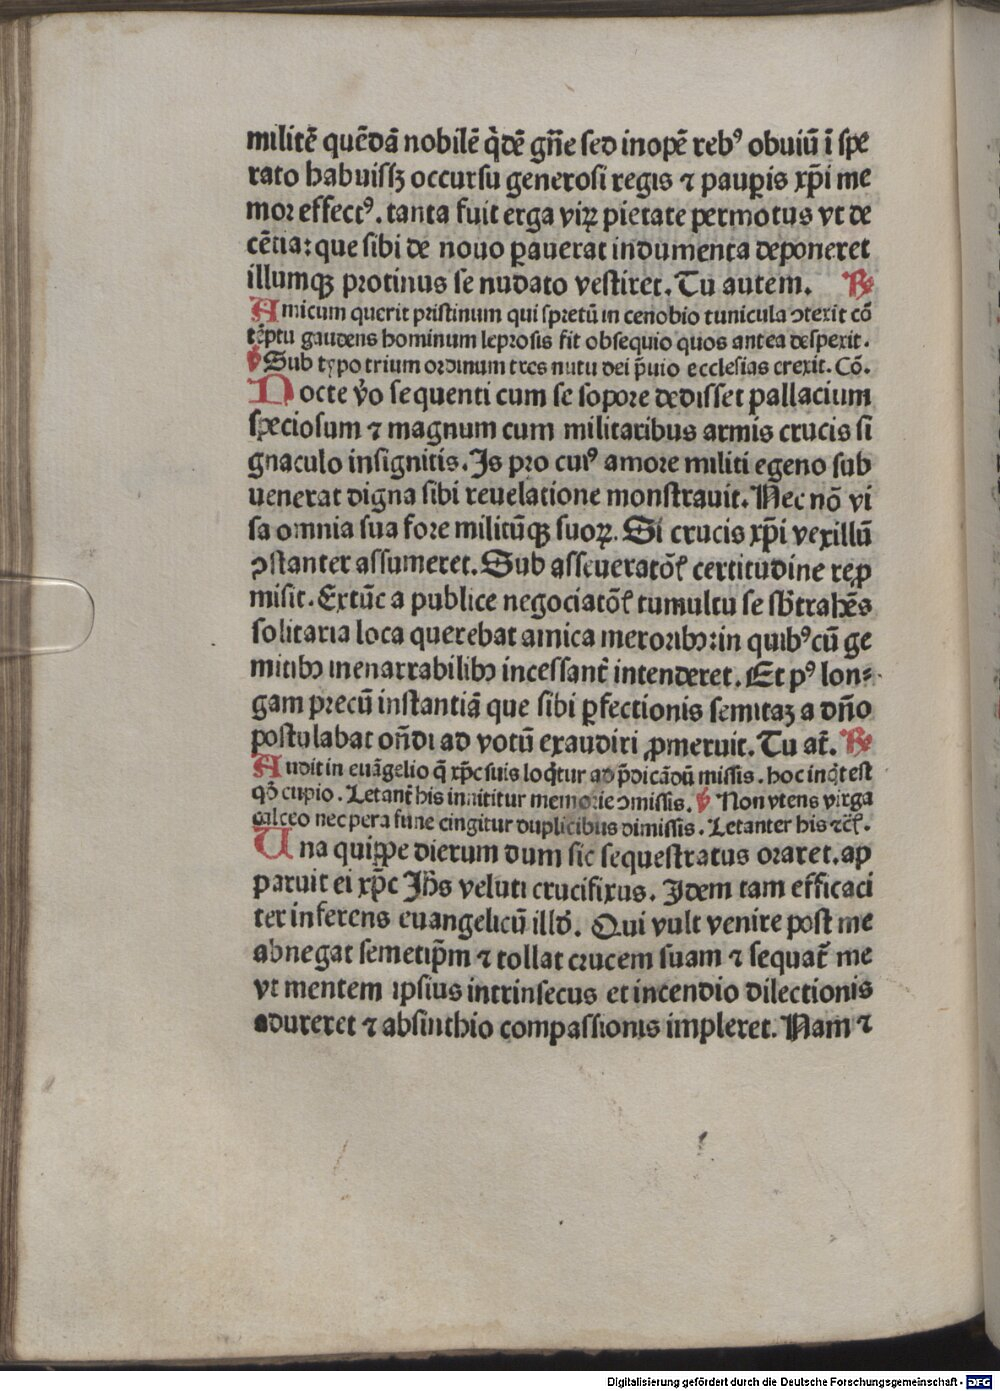 militē quēdā nobilē q̇dē gn̄e sed inopē rebꝰ obuiū ī spe
rato habuissꝫ occursu generosi regis ⁊ pauꝑis xp̄i me
mor effectꝰ. tanta fuit erga viꝝ pietate permotus vt de
cētia: que sibi de nouo ꝑauerat indumenta deponeret
illumqꝫ protinus se nudato vestiret. Tu autem. ℞
Amicum querit pristinum qui spretū in cenobio tunicula ɔtexit cō
tēptu gaudens hominum leprosis fit obsequio quos antea despexit.
℣ Sub typo trium ordinum tres nutu dei p̄uio ecclesias erexit. Cō.
Nocte v̓o sequenti cum se sopore dedisset pallacium
speciosum ⁊ magnum cum militaribus armis crucis si
gnaculo insignitis. Is pro cuiꝰ amore militi egeno sub
uenerat digna sibi reuelatione monstrauit. Nec nō vi
sa omnia sua fore militūqꝫ suoꝝ. Si crucis xp̄i vexillū
ɔstanter assumeret. Sub asseueratōꝭ certitudine reꝓ
misit. Extūc a publice negociatōꝭ tumultu se sb̄trahēs
solitaria loca querebat amica meroribꝫ: in quibꝰ cū ge
mitibꝫ inenarrabilibꝫ incessant̄ intenderet. Et pꝰ lon⸗
gam precū instantiā que sibi ꝑfectionis semitaꝫ a dn̄o
postulabat on̄di ad votū exaudiri ꝓmeruit. Tu at̄. ℞
Audit in euāgelio q̄ xp̄c suis loq̇tur ad p̄dicādū missis. hoc inq̇t est
qd̓ cupio. Letant̄ his innititur memorie ɔmissis. ℣ Non vtens virga
calceo nec pera fune cingitur duplicibus dimissis. Letanter his ⁊c̄ꝭ.
Una quippe dierum dum sic sequestratus oraret. ap
paruit ei xp̄c Jhs̄ veluti crucifixus. Idem tam efficaci
ter inferens euangelicū illd̓. Qui vult venire post me
abnegat semetip̄m ⁊ tollat crucem suam ⁊ sequat̄ me
vt mentem ipsius intrinsecus et incendio dilectionis
adureret ⁊ absinthio compassionis impleret. Nam ⁊
Digitalisierung gefördert durch die Deutsche Forschungsgemeinschaft - DFG